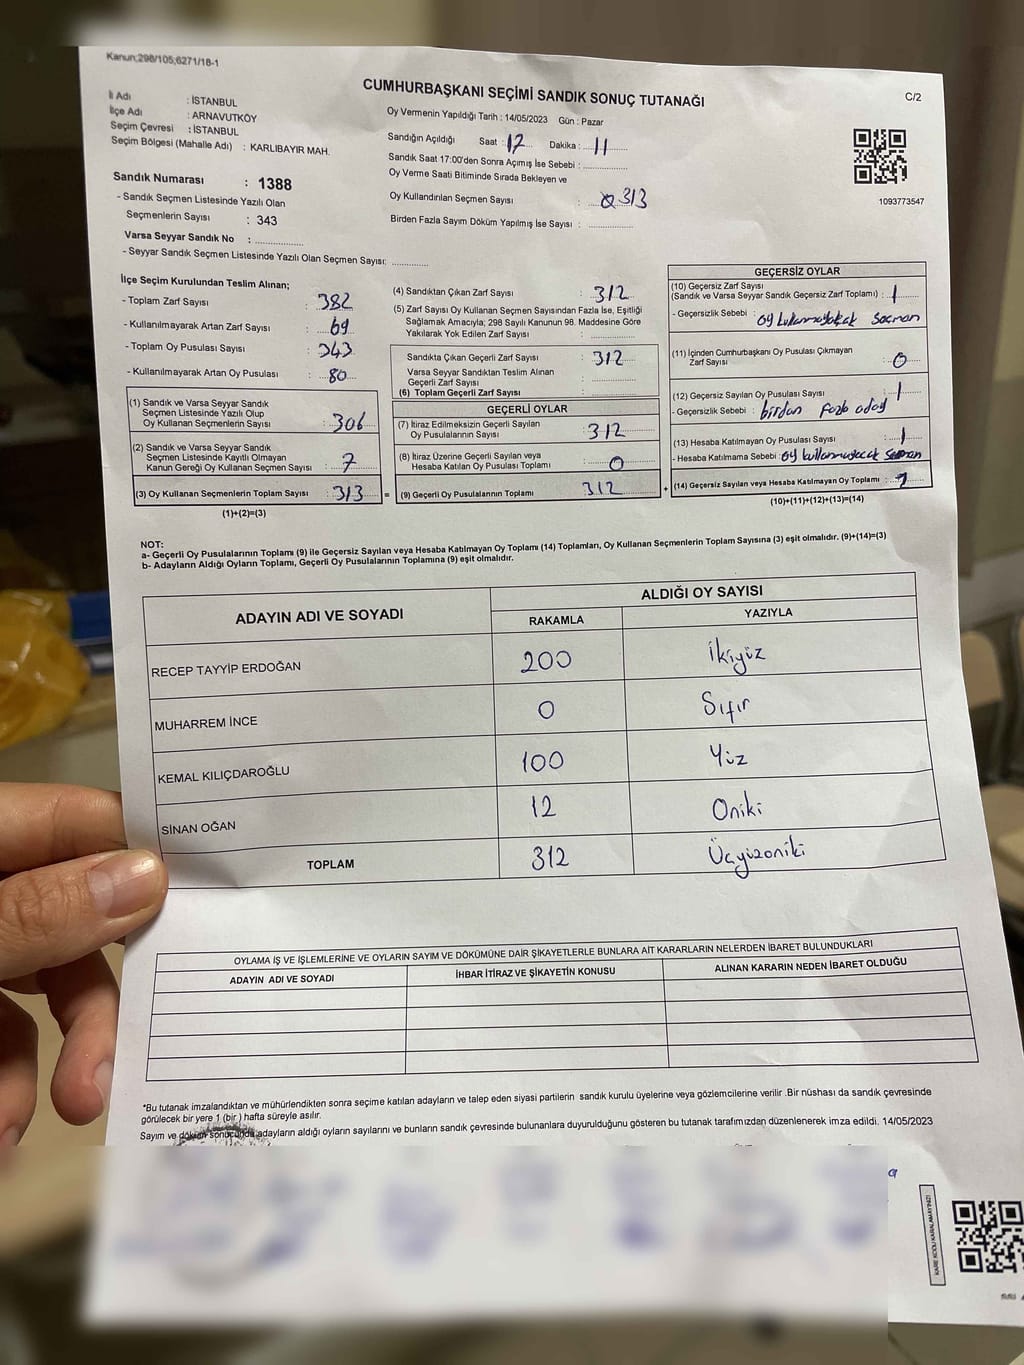 Kanun;298/105;6271/18-1
CUMHURBAŞKANI SEÇİMİ SANDIK SONUÇ TUTANAĞI
C/2
İl Adı : İSTANBUL
İlçe Adı : ARNAVUTKÖY
Seçim Çevresi : İSTANBUL
Seçim Bölgesi (Mahalle Adı) : KARLIBAYIR MAH.
Sandık Numarası : 1388
- Sandık Seçmen Listesinde Yazılı Olan
Seçmenlerin Sayısı : 343
Varsa Seyyar Sandık No : ..............
- Seyyar Sandık Seçmen Listesinde Yazılı Olan Seçmen Sayısı: ............
Oy Vermenin Yapıldığı Tarih : 14/05/2023 Gün : Pazar
Sandığın Açıldığı Saat : 17 Dakika : 11
Sandık Saat 17:00'den Sonra Açımış İse Sebebi : ..............
Oy Verme Saati Bitiminde Sırada Bekleyen ve
Oy Kullandırılan Seçmen Sayısı : 313
Birden Fazla Sayım Döküm Yapılmış İse Sayısı : ..............
1093773547
İlçe Seçim Kurulundan Teslim Alınan;
- Toplam Zarf Sayısı : 382
- Kullanılmayarak Artan Zarf Sayısı : 69
- Toplam Oy Pusulası Sayısı : 343
- Kullanılmayarak Artan Oy Pusulası : 80
(1) Sandık ve Varsa Seyyar Sandık
Seçmen Listesinde Yazılı Olup
Oy Kullanan Seçmenlerin Sayısı : 306
(2) Sandık ve Varsa Seyyar Sandık
Seçmen Listesinde Kayıtlı Olmayan
Kanun Gereği Oy Kullanan Seçmen Sayısı : 7
(3) Oy Kullanan Seçmenlerin Toplam Sayısı : 313 =
(1)+(2)=(3)
(4) Sandıktan Çıkan Zarf Sayısı : 312
(5) Zarf Sayısı Oy Kullanan Seçmen Sayısından Fazla İse, Eşitliği
Sağlamak Amacıyla; 298 Sayılı Kanunun 98. Maddesine Göre
Yakılarak Yok Edilen Zarf Sayısı : ..............
Sandıkta Çıkan Geçerli Zarf Sayısı : 312
Varsa Seyyar Sandıktan Teslim Alınan
Geçerli Zarf Sayısı : ..............
(6) Toplam Geçerli Zarf Sayısı : ..............
GEÇERLİ OYLAR
(7) İtiraz Edilmeksizin Geçerli Sayılan
Oy Pusulalarının Sayısı : 312
(8) İtiraz Üzerine Geçerli Sayılan veya
Hesaba Katılan Oy Pusulası Toplamı : 0
(9) Geçerli Oy Pusulalarının Toplamı 312 +
GEÇERSİZ OYLAR
(10) Geçersiz Zarf Sayısı
(Sandık ve Varsa Seyyar Sandık Geçersiz Zarf Toplamı) : 1
- Geçersizlik Sebebi : oy kullanmayacak seçmen
(11) İçinden Cumhurbaşkanı Oy Pusulası Çıkmayan
Zarf Sayısı : 0
(12) Geçersiz Sayılan Oy Pusulası Sayısı : 1
- Geçersizlik Sebebi : birden fazla aday
(13) Hesaba Katılmayan Oy Pusulası Sayısı : 1
- Hesaba Katılmama Sebebi : oy kullanmayacak seçmen
(14) Geçersiz Sayılan veya Hesaba Katılmayan Oy Toplamı :
(10)+(11)+(12)+(13)=(14)
NOT:
a- Geçerli Oy Pusulalarının Toplamı (9) ile Geçersiz Sayılan veya Hesaba Katılmayan Oy Toplamı (14) Toplamları, Oy Kullanan Seçmenlerin Toplam Sayısına (3) eşit olmalıdır. (9)+(14)=(3)
b- Adayların Aldığı Oyların Toplamı, Geçerli Oy Pusulalarının Toplamına (9) eşit olmalıdır.
ADAYIN ADI VE SOYADI ALDIĞI OY SAYISI
RAKAMLA YAZIYLA
RECEP TAYYİP ERDOĞAN 200 İkiyüz
MUHARREM İNCE 0 Sıfır
KEMAL KILIÇDAROĞLU 100 Yüz
SİNAN OĞAN 12 Oniki
TOPLAM 312 Üçyüzoniki
OYLAMA İŞ VE İŞLEMLERİNE VE OYLARIN SAYIM VE DÖKÜMÜNE DAİR ŞİKAYETLERLE BUNLARA AİT KARARLARIN NELERDEN İBARET BULUNDUKLARI
ADAYIN ADI VE SOYADI İHBAR İTİRAZ VE ŞİKAYETİN KONUSU ALINAN KARARIN NEDEN İBARET OLDUĞU
*Bu tutanak imzalandıktan ve mühürlendikten sonra seçime katılan adayların ve talep eden siyasi partilerin sandık kurulu üyelerine veya gözlemcilerine verilir. Bir nüshası da sandık çevresinde
görülecek bir yere 1 (bir) hafta süreyle asılır.
Sayım ve döküm sonucunda adayların aldığı oyların sayılarını ve bunların sandık çevresinde bulunanlara duyurulduğunu gösteren bu tutanak tarafımızdan düzenlenerek imza edildi. 14/05/2023
KARE KODU KARALAMAYINIZ!